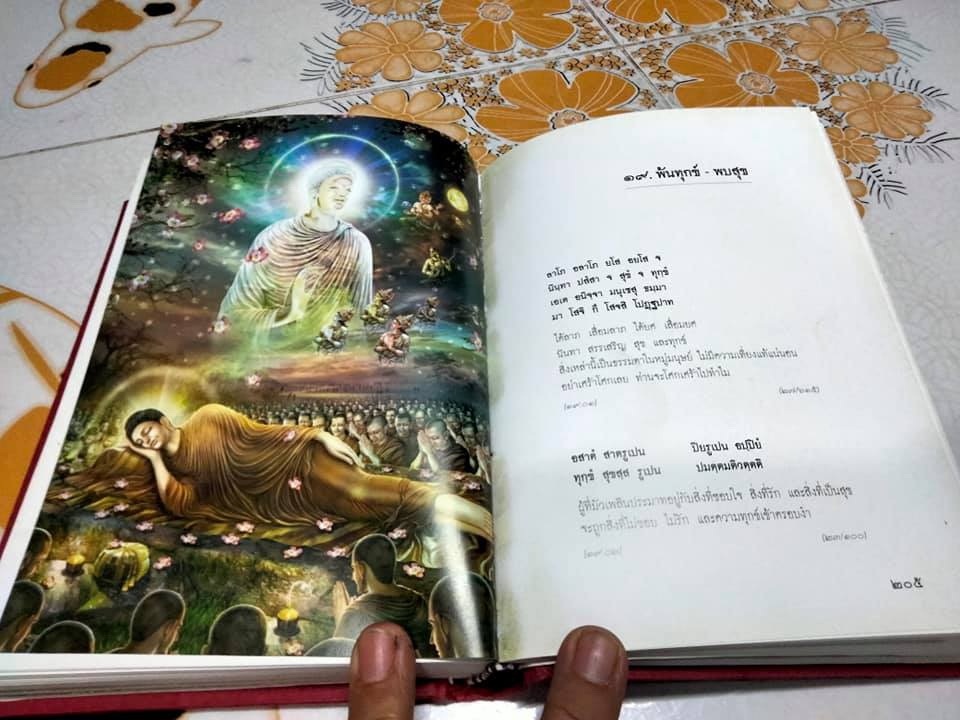 ๑๙. พ้นทุกข์ - พบสุข
ลาโภ อลาโภ ยโส อยโส จ
นินฺทา ปสํสา จ สุขํ จ ทุกฺขํ
เอเต อนิจฺจา มนุเชสุ ธมฺมา
มา โสจิ กึ โสจสิ โปฏฺฐปาท
ได้ลาภ เสื่อมลาภ ได้ยศ เสื่อมยศ
นินทา สรรเสริญ สุข และทุกข์
สิ่งเหล่านี้เป็นธรรมดาในหมู่มนุษย์ ไม่มีความเที่ยงแท้แน่นอน
อย่าเศร้าโศกเลย ท่านจะโศกเศร้าไปทำไม
(๑๙.๐๑) (๒๗/๖๑๕)
อสาตํ สาตรูเปน ปิยรูเปน อปฺปิยํ
ทุกฺขํ สุขสฺส รูเปน ปมตฺตมติวตฺตติ
ผู้ที่มัวเพลินประมาทอยู่กับสิ่งที่ชอบใจ สิ่งที่รัก และสิ่งที่เป็นสุข
จะถูกสิ่งที่ไม่ชอบ ไม่รัก และความทุกข์เข้าครอบงำ
(๑๙.๐๒) (๒๗/๑๐๐)
๒๐๕